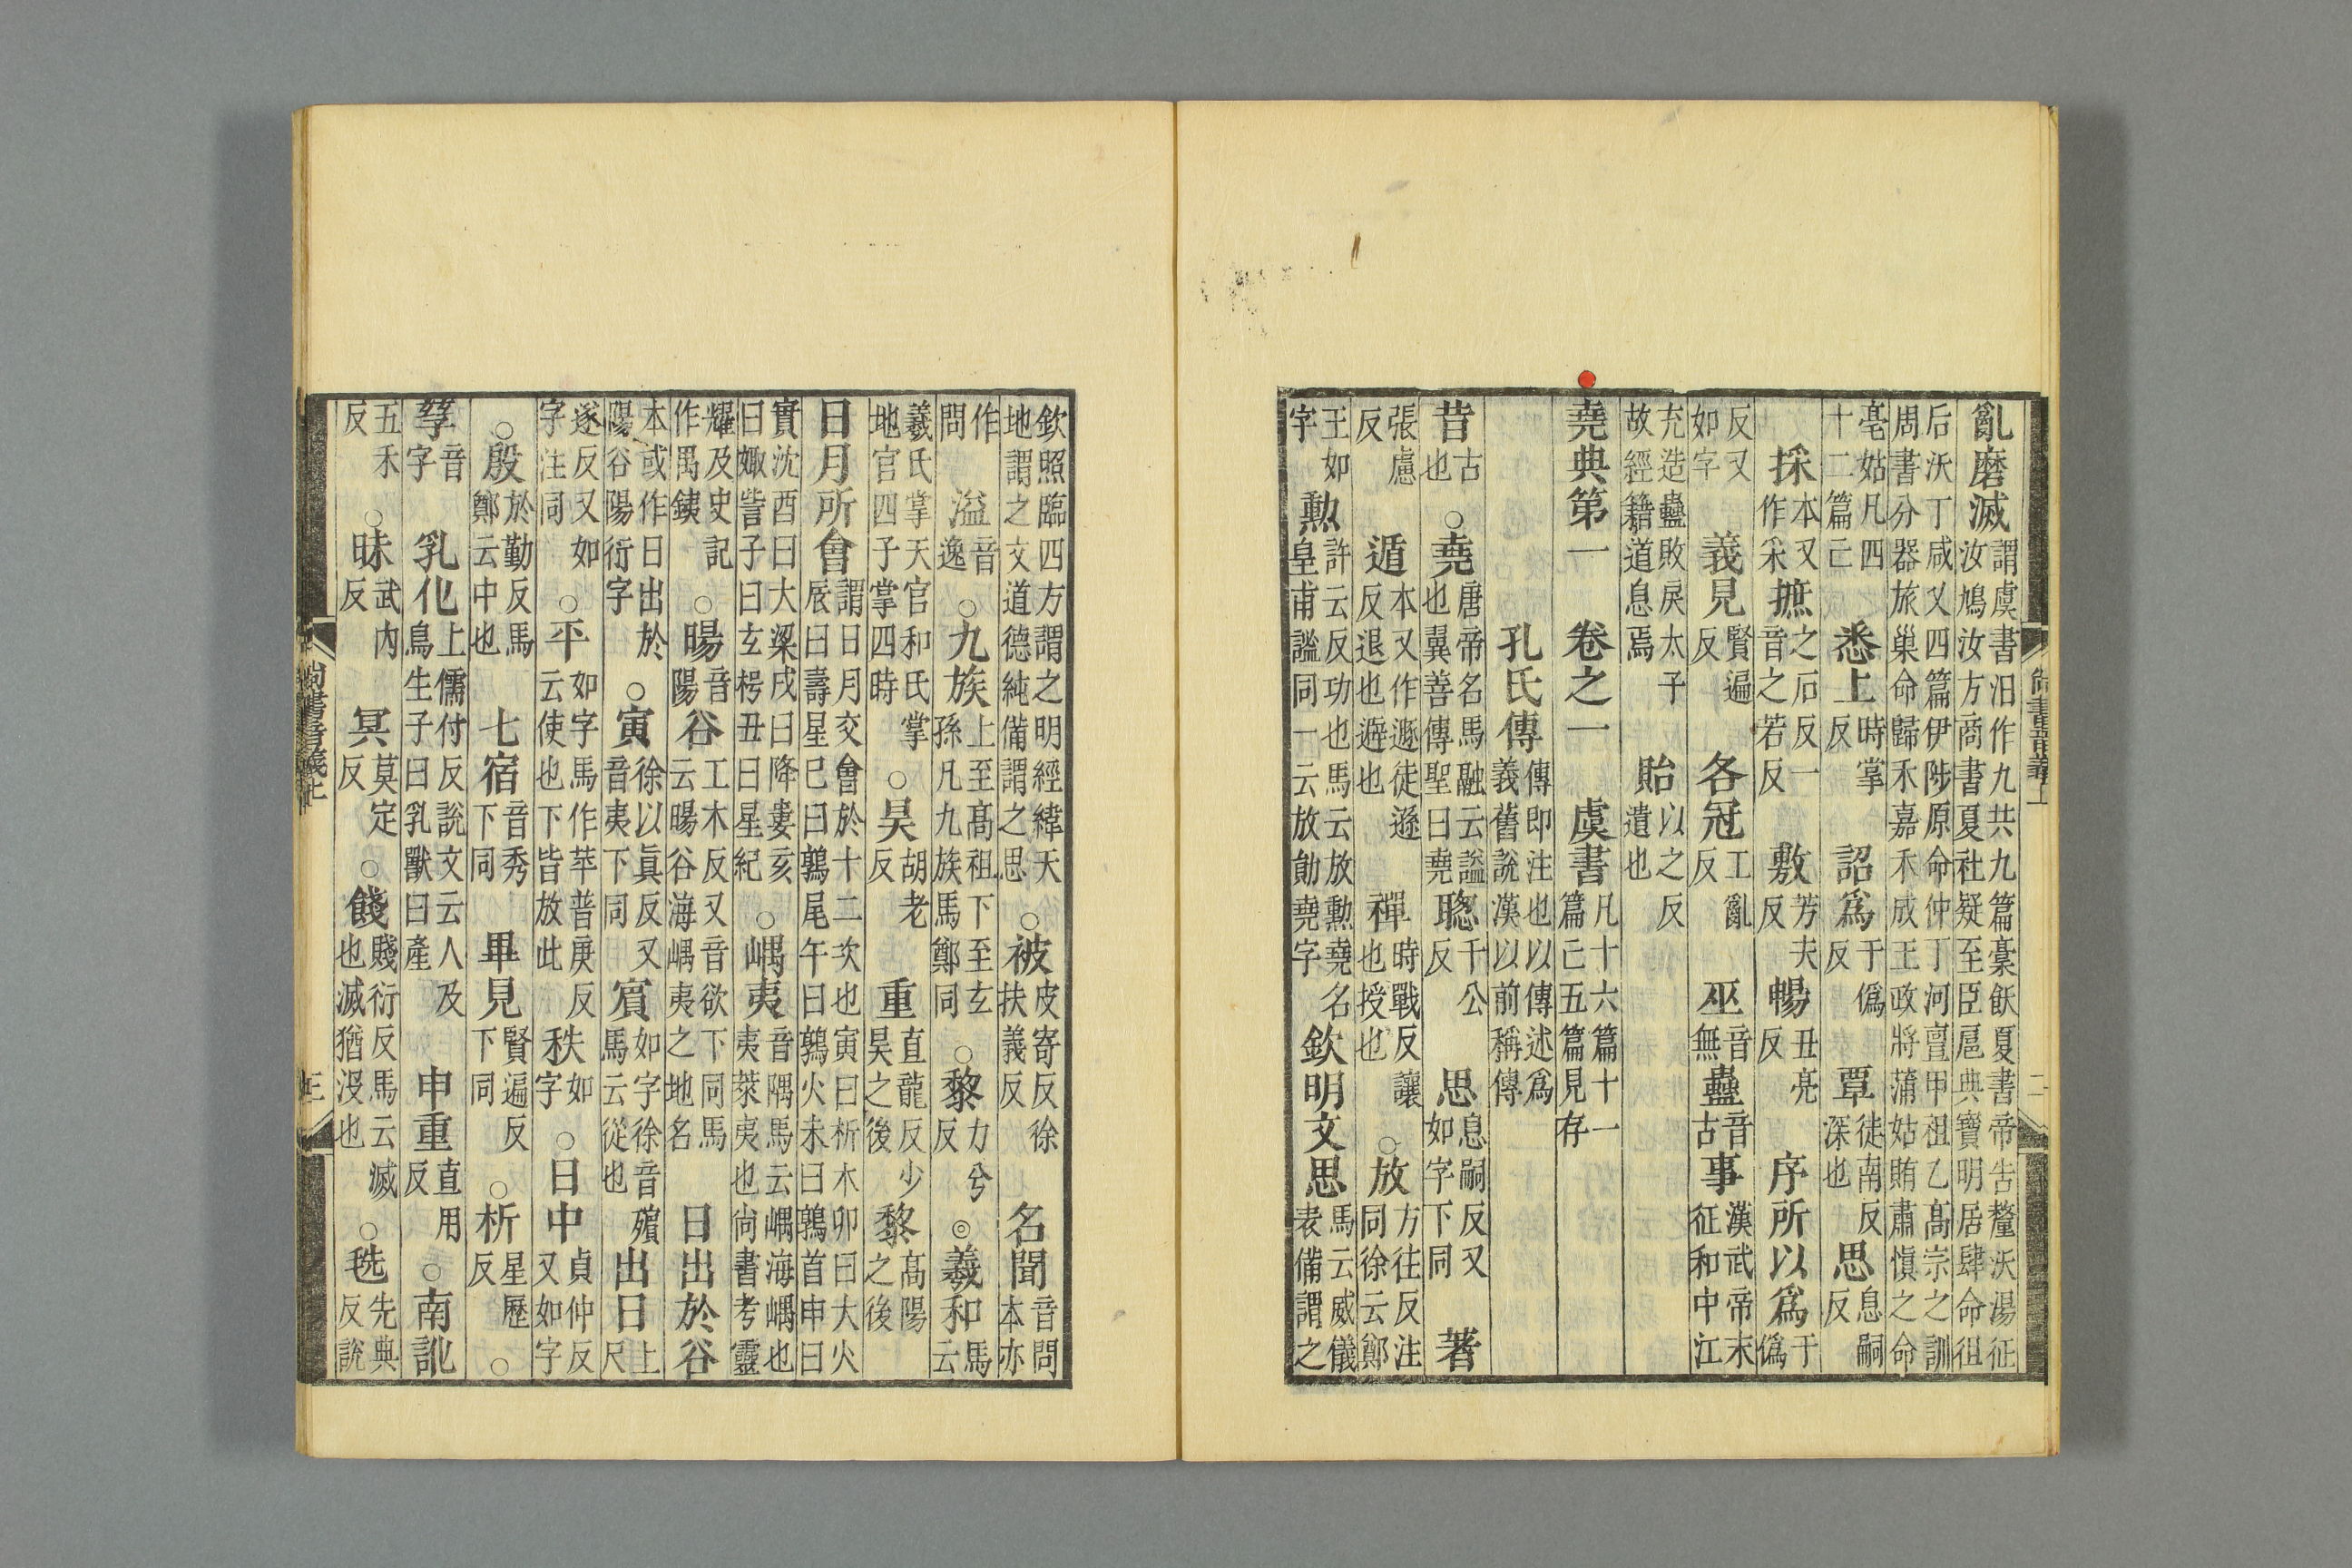 尚書音義上 二
亂磨滅 謂虞書汨作九共九篇槀飫夏書帝告釐沃湯征 汝鳩汝方商書夏社疑至臣扈典寶明居肆命徂
后沃丁咸乂四篇伊陟原命仲丁河亶甲祖乙髙宗之訓 周書分器旅巢命歸禾嘉禾成王政將蒲姑賄肅愼之命
亳姑凡四 十二篇亡 悉上 時掌 反 詔爲 于僞 反 覃 徒南反 深也 思 息嗣 反
採 本又 作采 摭 之石反一 音之若反 敷 芳夫 反 暢 丑亮 反 序所以爲 于 僞
反又 如字 義見 賢遍 反 各冠 工亂 反 巫 音 無 蠱 音 古 事 漢武帝末 征和中江
充造蠱敗戾太子 故經籍道息焉 貽 以之反 遺也
堯典第一 卷之一 虞書 凡十六篇十一 篇亡五篇見存
孔氏傳 傳即注也以傳述爲 義舊說漢以前稱傳
昔 古 也 ○堯 唐帝名馬融云謚 也翼善傳聖曰堯 聦 千公 反 思 息嗣反又 如字下同 著
張慮 反 遁 本又作遯徒遜 反退也避也 禪 時戰反讓 也授也 ○放 方往反注 同徐云鄭
王如 字 勲 許云反功也馬云放勲堯名 皇甫謐同一云放勛堯字 欽明文思 馬云威儀 表備謂之
欽照臨四方謂之明經緯天 地謂之文道德純備謂之思 ○被 皮寄反徐 扶義反 名聞 音問 本亦
作 問 溢 音 逸 ○九族 上至髙祖下至玄 孫凡九族馬鄭同 ○黎 力兮 反 ◎羲和 馬 云
羲氏掌天官和氏掌 地官四子掌四時 ○昊 胡老 反 重 直龍反少 昊之後 黎 髙陽 之後
日月所會 謂日月交會於十二次也寅曰析木卯曰大火 辰曰壽星巳曰鶉尾午曰鶉火未曰鶉首申曰
實沈酉曰大梁戌曰降婁亥 曰娵訾子曰玄枵丑曰星紀 ○嵎夷 音隅馬云嵎海嵎也 夷萊夷也尚書考靈
耀及史記 作禺銕 ○暘 音 陽 谷 工木反又音欲下同馬 云暘谷海嵎夷之地名 日出於谷
本或作日出於 陽谷陽衍字 ○寅 徐以眞反又 音夷下同 賓 如字徐音殯 馬云從也 出日 上 尺
遂反又如 字注同 ○平 如字馬作苹普庚反 云使也下皆放此 秩 如 字 ○日中 貞仲反 又如字
○殷 於勤反馬 鄭云中也 七宿 音秀 下同 畢見 賢遍反 下同 ○析 星歷 反 ○
孳 音 字 乳化 上儒付反說文云人及 鳥生子曰乳獸曰產 申重 直用 反 ○南訛
五禾 反 ○昧 武内 反 冥 莫定 反 ○餞 賤衍反馬云滅 也滅猶没也 ○毨 先典 反說
尚書音義上 三